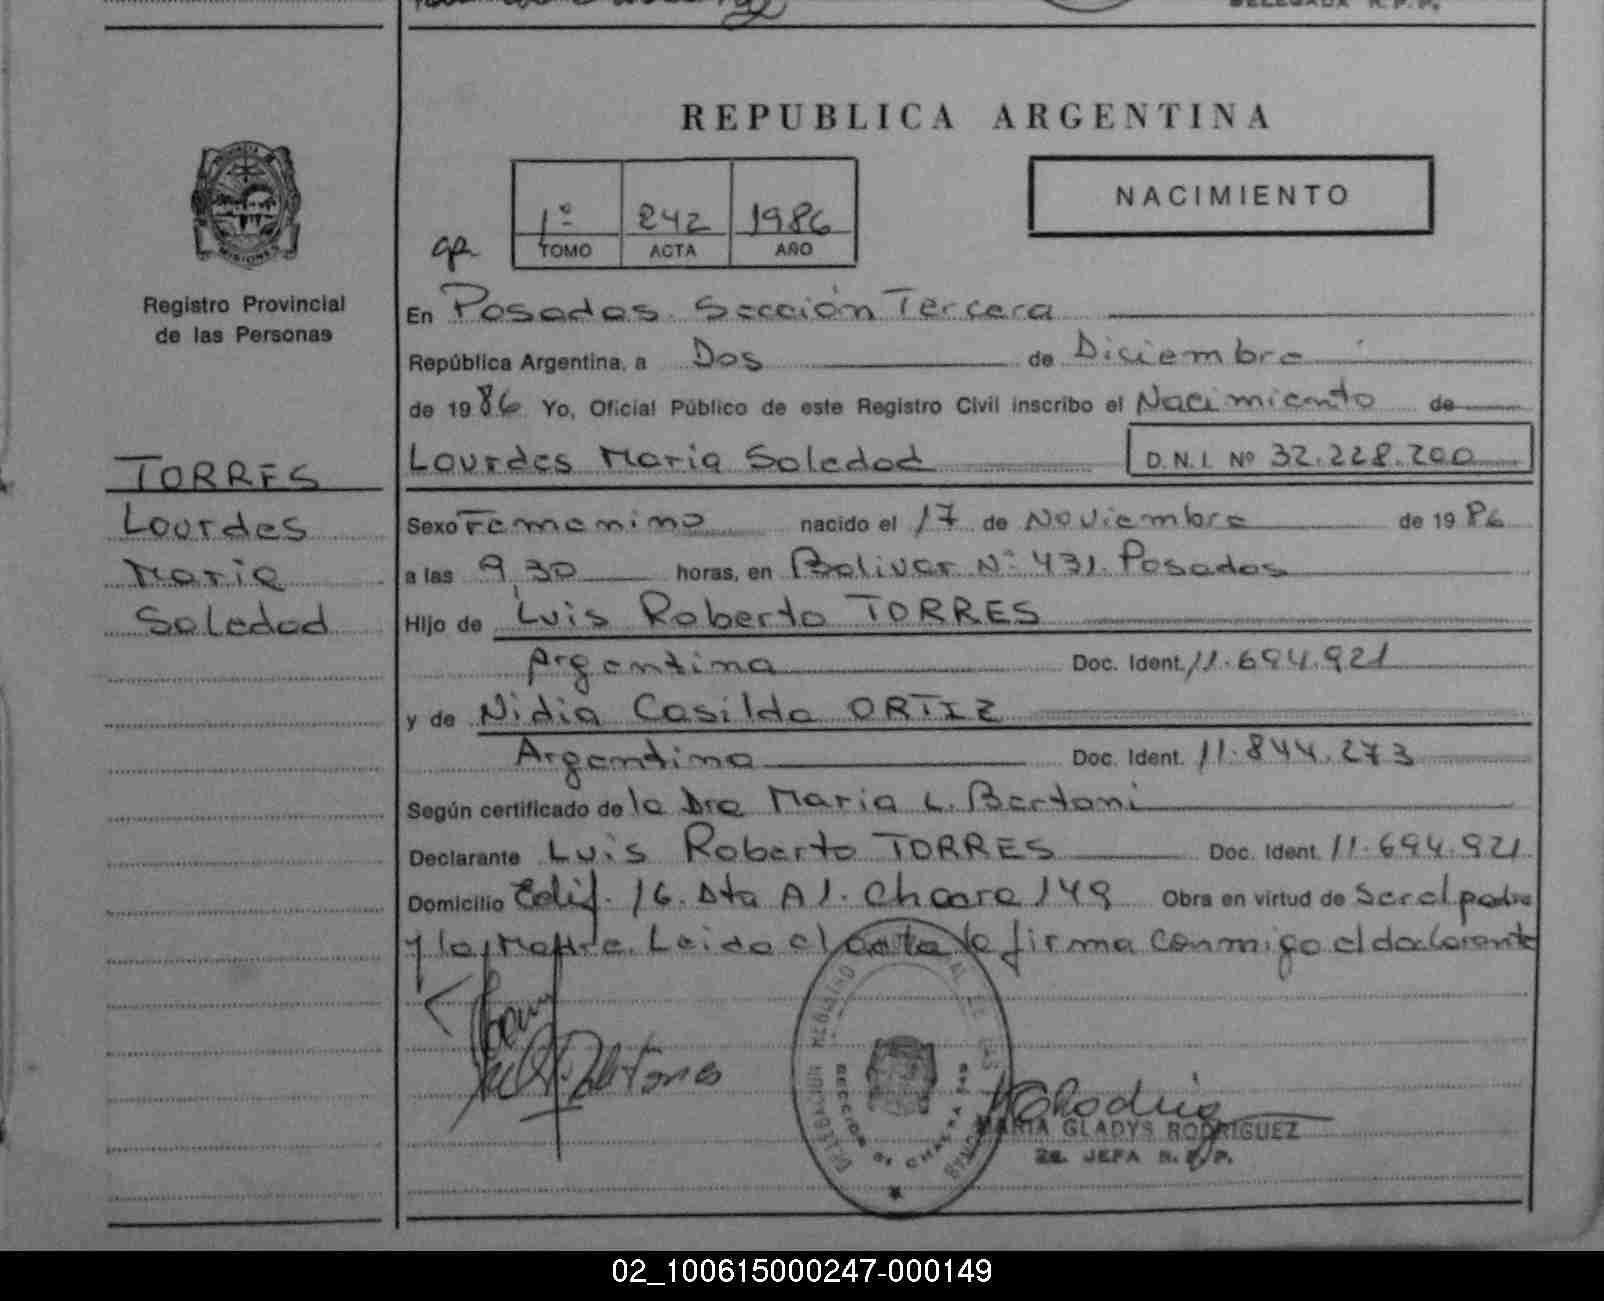 DELEGADA R.P.P.
REPUBLICA ARGENTINA
PROVINCIA DE
MISIONES
Registro Provincial
de las Personas
NACIMIENTO
1º 242 1986
TOMO ACTA AÑO
En Posadas Sección Tercera
República Argentina, a Dos de Diciembre
de 1986 Yo, Oficial Público de este Registro Civil inscribo el Nacimiento de
Lourdes Maria Soledad D.N.I. Nº 32.228.200
TORRES
Lourdes
Maria
Soledad
Sexo Femenino nacido el 17 de Noviembre de 1986
a las 9,30 horas, en Bolivar Nº 431. Posadas
Hijo de Luis Roberto TORRES
Argentina Doc. Ident. 11.694.921
y de Nidia Casilda ORTIZ
Argentina Doc. Ident. 11.844.273
Según certificado de la Dra Maria L. Bertoni
Declarante Luis Roberto TORRES Doc. Ident. 11.694.921
Domicilio Edif. 16. Dta A1. Chacra 149 Obra en virtud de ser el padre
y la Madre. Leida el acta la firma conmigo el declarante
MARIA GLADYS RODRIGUEZ
2a. JEFA R.P.P.
02_100615000247-000149